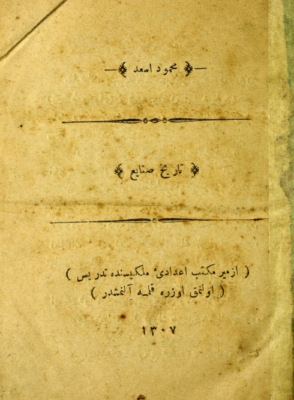 محمود اسعد
تاریخ صنایع
( ازمیر مكتب اعدادیٔ ملكیسنده تدریس )
( اولنمق اوزره قلمه آلنمشدر )
١٣٠٧